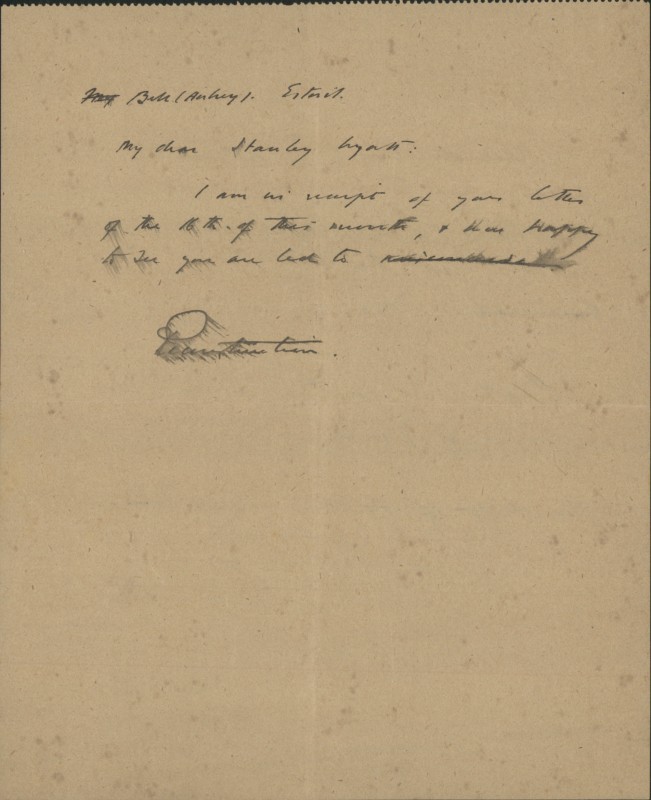 My Bell (Aubrey). Estoril.
My dear Stanley Wyatt:
I am in receipt of your letter
of the 16th. of this month, & am happy
to see you are led to